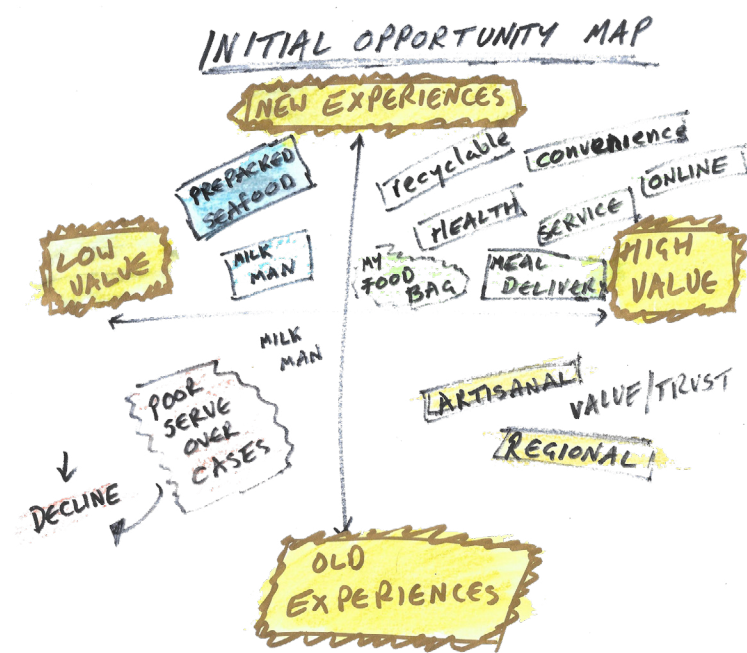 INITIAL OPPORTUNITY MAP
NEW EXPERIENCES
PREPACKED
SEAFOOD
recyclable
convenience
ONLINE
HEALTH
SERVICE
LOW
VALUE
MILK
MAN
MY
FOOD
BAG
MEAL
DELIVERY
HIGH
VALUE
MILK
MAN
POOR
SERVE
OVER
CASES
ARTISANAL
VALUE/TRUST
REGIONAL
DECLINE
OLD
EXPERIENCES